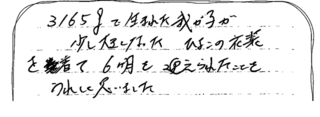 3165gで生まれた我が子が
少し大きくなった ひよこの衣装
を着て 6ヶ月を迎えられたことを
うれしく思いました